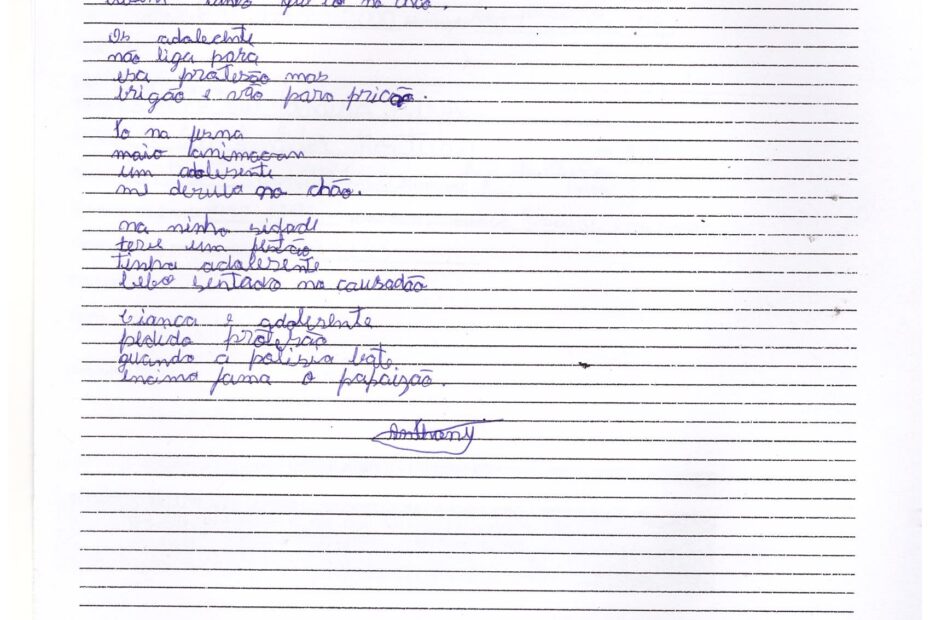 que to no chão.
Os adolecente
não liga para
esa protesão mas
brigão e vão para pricão.
To na
maio
um adolesente
me deruba no chão.
na ninha sidade
teve um festão
tinha adolesente
bebo sentado no causadão
Cianca e adolesente
pedido protesão
quando a polisia bate
encima jama o papaizão.
Anthony